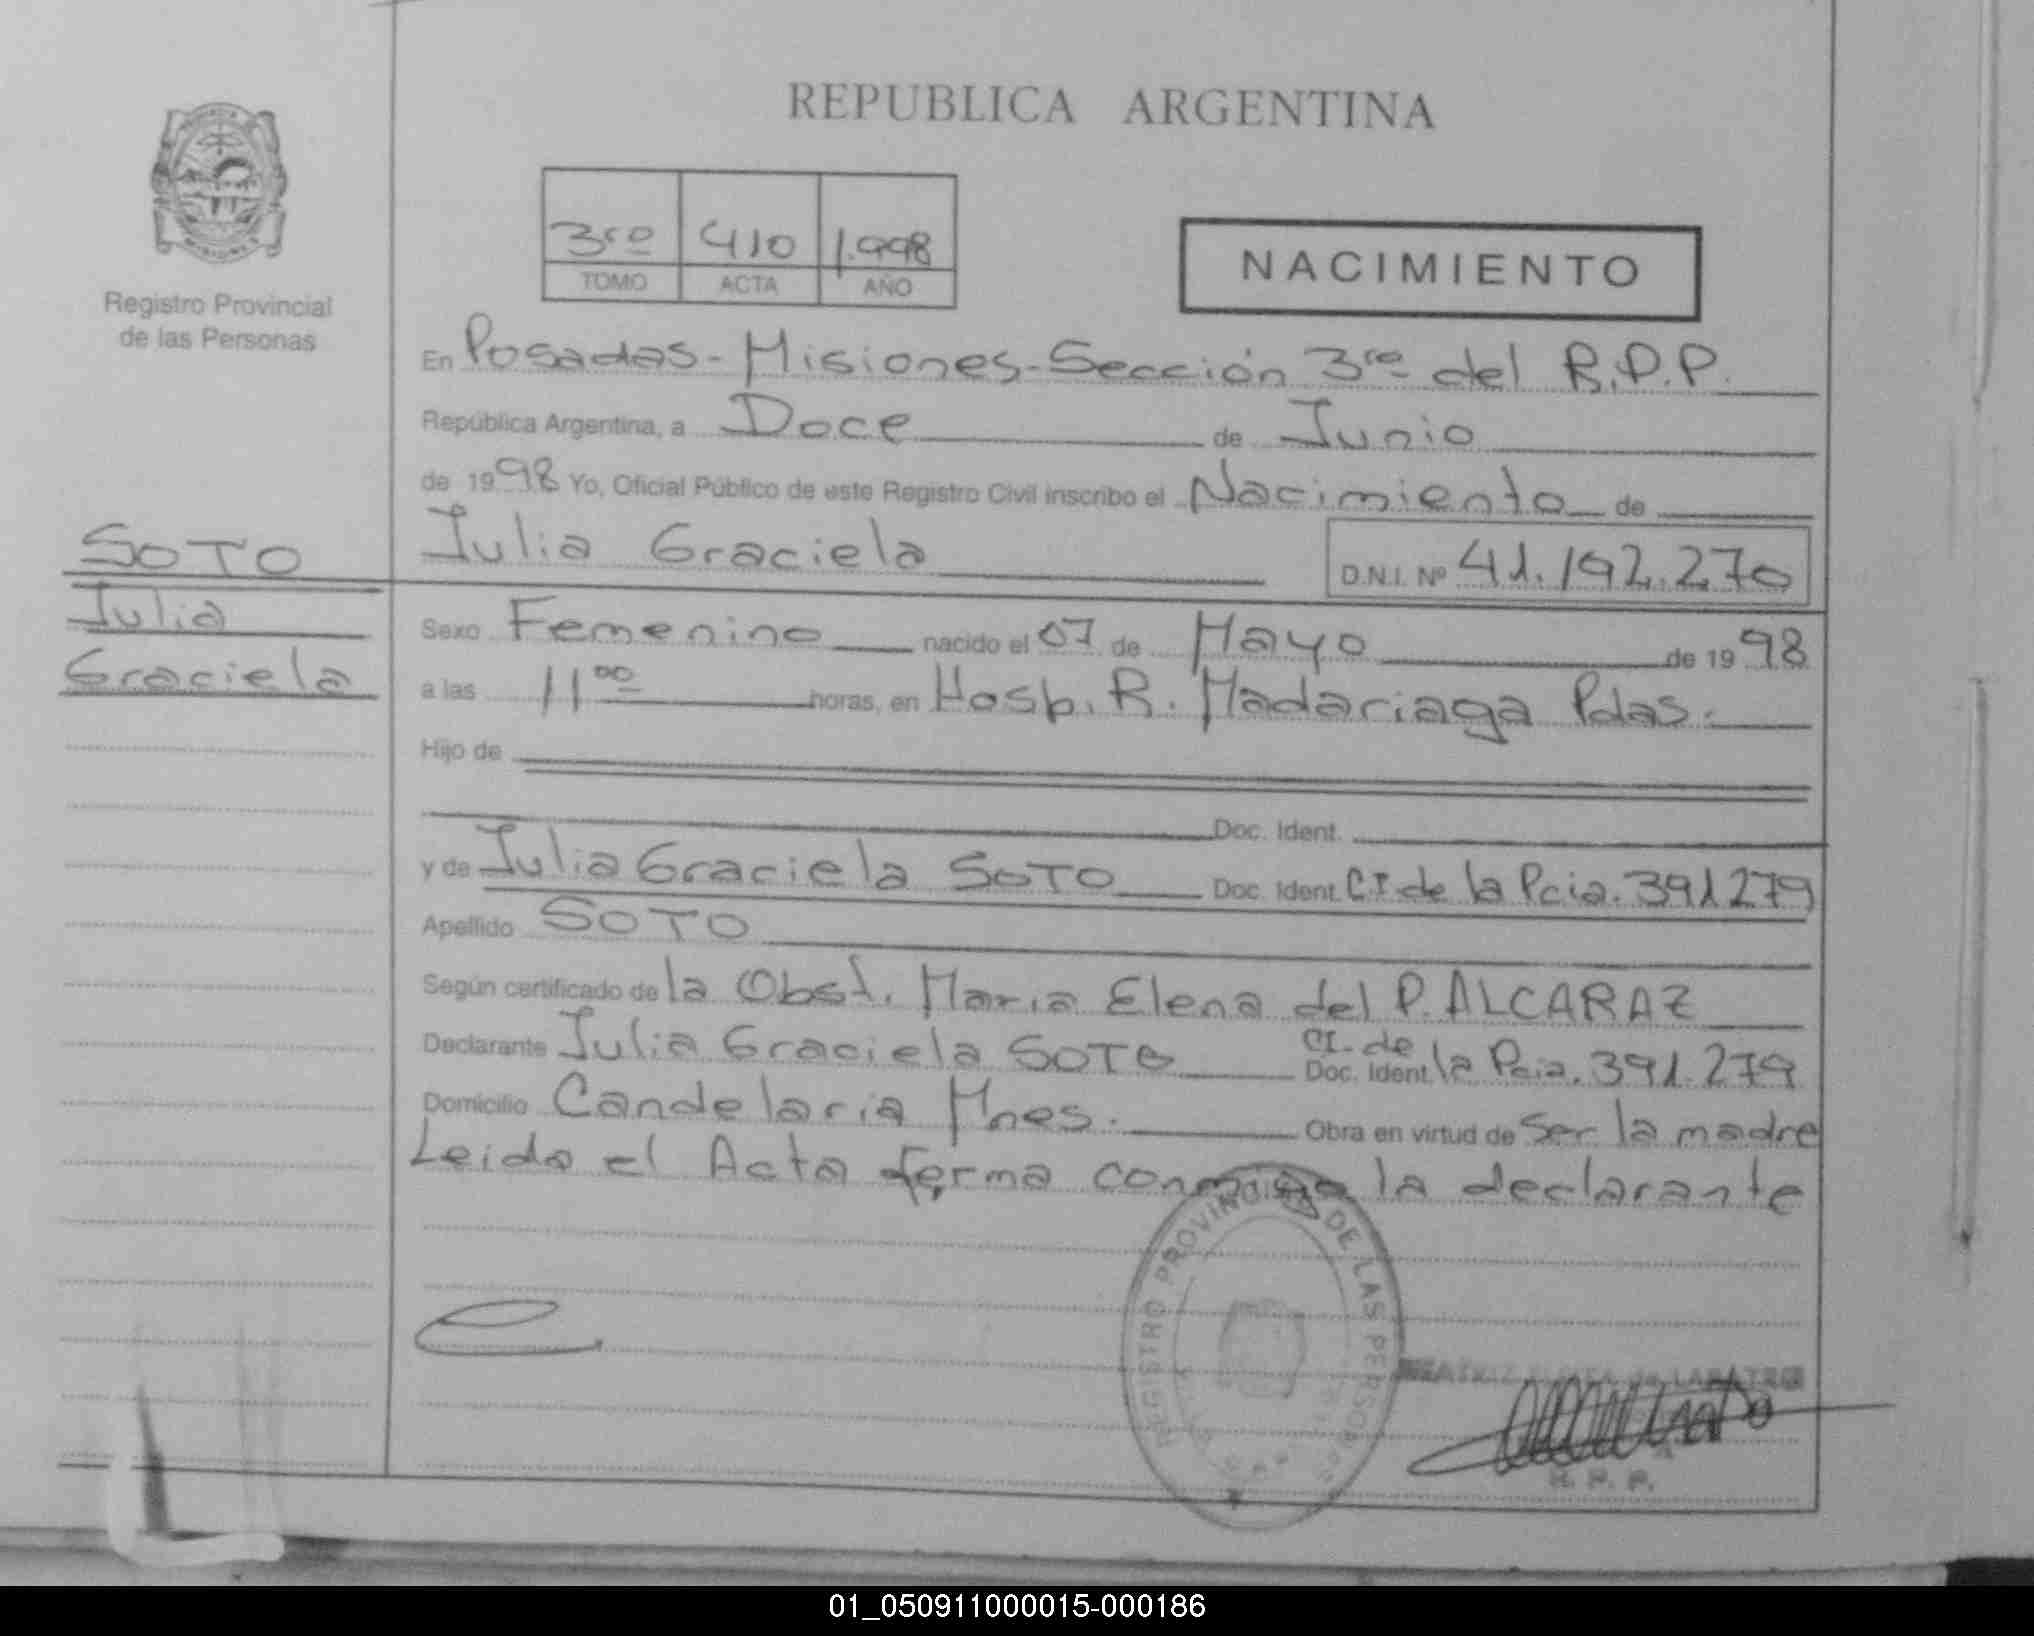 REPUBLICA ARGENTINA
Registro Provincial
de las Personas
3ro 410 1.998
TOMO ACTA AÑO
NACIMIENTO
En Posadas - Misiones - Sección 3ra del R.P.P.
República Argentina, a Doce de Junio
de 1998 Yo, Oficial Público de este Registro Civil inscribo el Nacimiento de
SOTO
Julia
Graciela
Julia Graciela D.N.I. Nº 41.192.270
Sexo Femenino nacido el 07 de Mayo de 1998
a las 11 00 horas, en Hosp. R. Madariaga Pdas.
Hijo de
Doc. Ident.
y de Julia Graciela SOTO Doc. Ident. C.I. de la Pcia. 391279
Apellido SOTO
Según certificado de la Obst. Maria Elena del P. ALCARAZ
Declarante Julia Graciela SOTO Doc. Ident. CI. de la Pcia. 391.279
Domicilio Candelaria Mnes. Obra en virtud de Ser la madre
Leida el Acta firma conmigo la declarante
REGISTRO PROVINCIAL DE LAS PERSONAS
R. P. P.
01_050911000015-000186